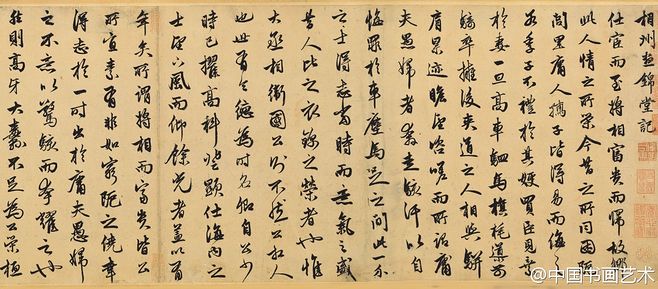 相州晝錦堂記
仕宦而至將相富貴而歸故鄉
此人情之所榮今昔之所同困阨
閭里庸人孺子皆得易而侮之
若季子不禮於其嫂買臣見棄
於妻一旦高車駟馬旗旄導前
騎卒擁後夾道之人相與駢
肩累迹瞻望咨嗟而所謂庸
夫愚婦者奔走駭汗以自
悔罪於車塵馬足之間此一介
之士得志當時而意氣之盛
昔人比之衣錦之榮者也惟
大丞相衛國公則不然公相人
也世有令德為時名卿自公少
時已擢高科登顯仕海內之
士望下風而仰餘光者蓋以有
年矣所謂將相而富貴皆公
所宜素有非如窮阨之僥幸
得志於一時出於庸夫愚婦
之不意以驚駭而夸耀之也
然則高牙大纛不足為公榮桓
@中国书画艺术